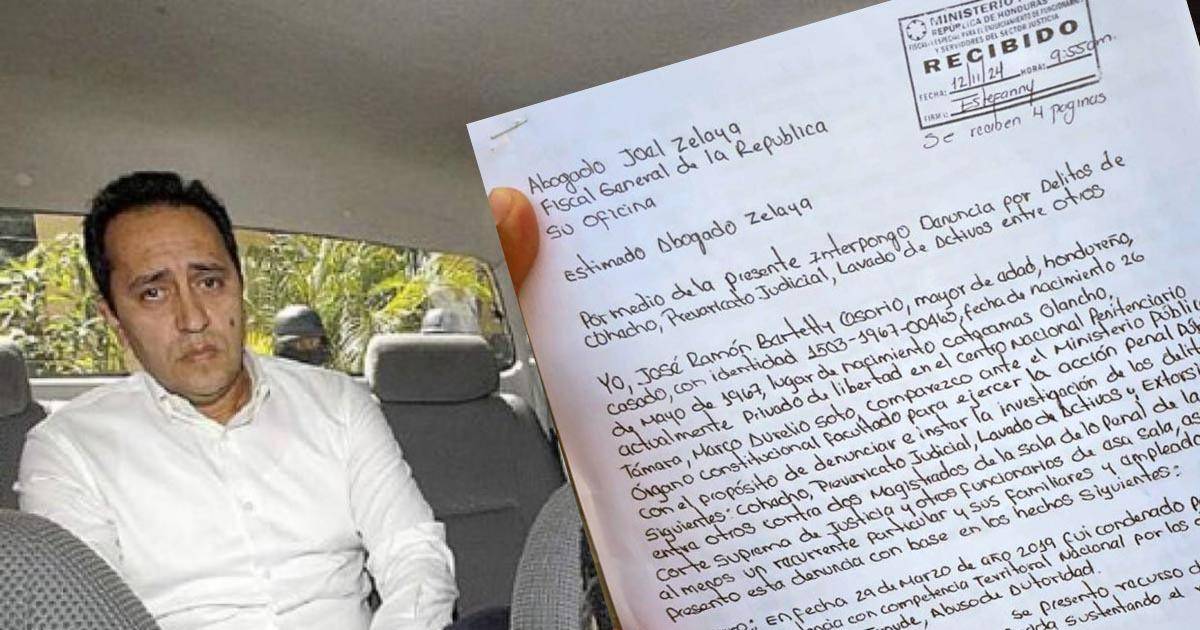 MINISTERIO
REPÚBLICA DE HONDURAS
FISCALIA ESPECIAL PARA EL ENJUICIAMIENTO DE FUNCIONARIOS
Y SERVIDORES DEL SECTOR JUSTICIA
RECIBIDO
FECHA: 12/11/24 HORA: 9:55am.
FIRMA: Estefanny
Se reciben 4 paginas
Abogado Joel Zelaya
Fiscal General de la Republica
Su oficina
Estimado Abogado Zelaya
Por medio de la presente Interpongo Denuncia por Delitos de
Cohecho, Prevaricato Judicial, Lavado de Activos entre otros
Yo, José Ramón Bertetty Osorio, mayor de edad, hondureño,
casado, con identidad 1503-1967-00465, fecha de nacimiento 26
de Mayo de 1967, lugar de nacimiento catacamas Olancho,
actualmente Privado de libertad en el Centro Nacional Penitenciario
Támara, Marco Aurelio Soto, comparezco ante el Ministerio Públic
Órgano constitucional facultado para ejercer la acción Penal
con el propósito de denunciar e instar la investigación de los delit
siguientes: cohecho, Prevaricato Judicial, Lavado de Activos y Extorsi
entre otros contra dos Magistrados de la sala de lo Penal de la
Corte Suprema de Justicia y otros funcionarios de esa sala, as
al menos un recurrente Particular y sus familiares y empleado
Presento esta denuncia con base en los hechos siguientes:
: En fecha 29 de Marzo de año 2019 fui condenado p
con competencia Territorial Nacional por los
Fraude, Abuso de Autoridad.
se presento recurso d
sustentando el